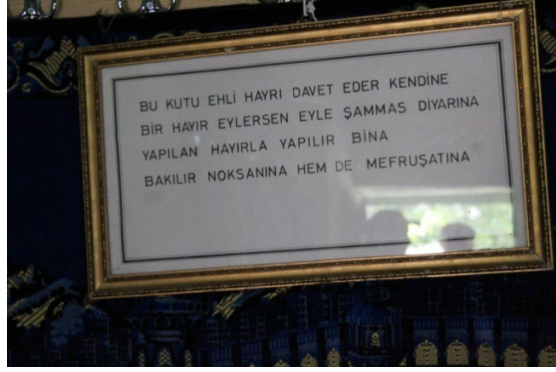 BU KUTU EHLİ HAYRI DAVET EDER KENDİNE
BİR HAYIR EYLERSEN EYLE ŞAMMAS DİYARINA
YAPILAN HAYIRLA YAPILIR BİNA
BAKILIR NOKSANINA HEM DE MEFRUŞATINA